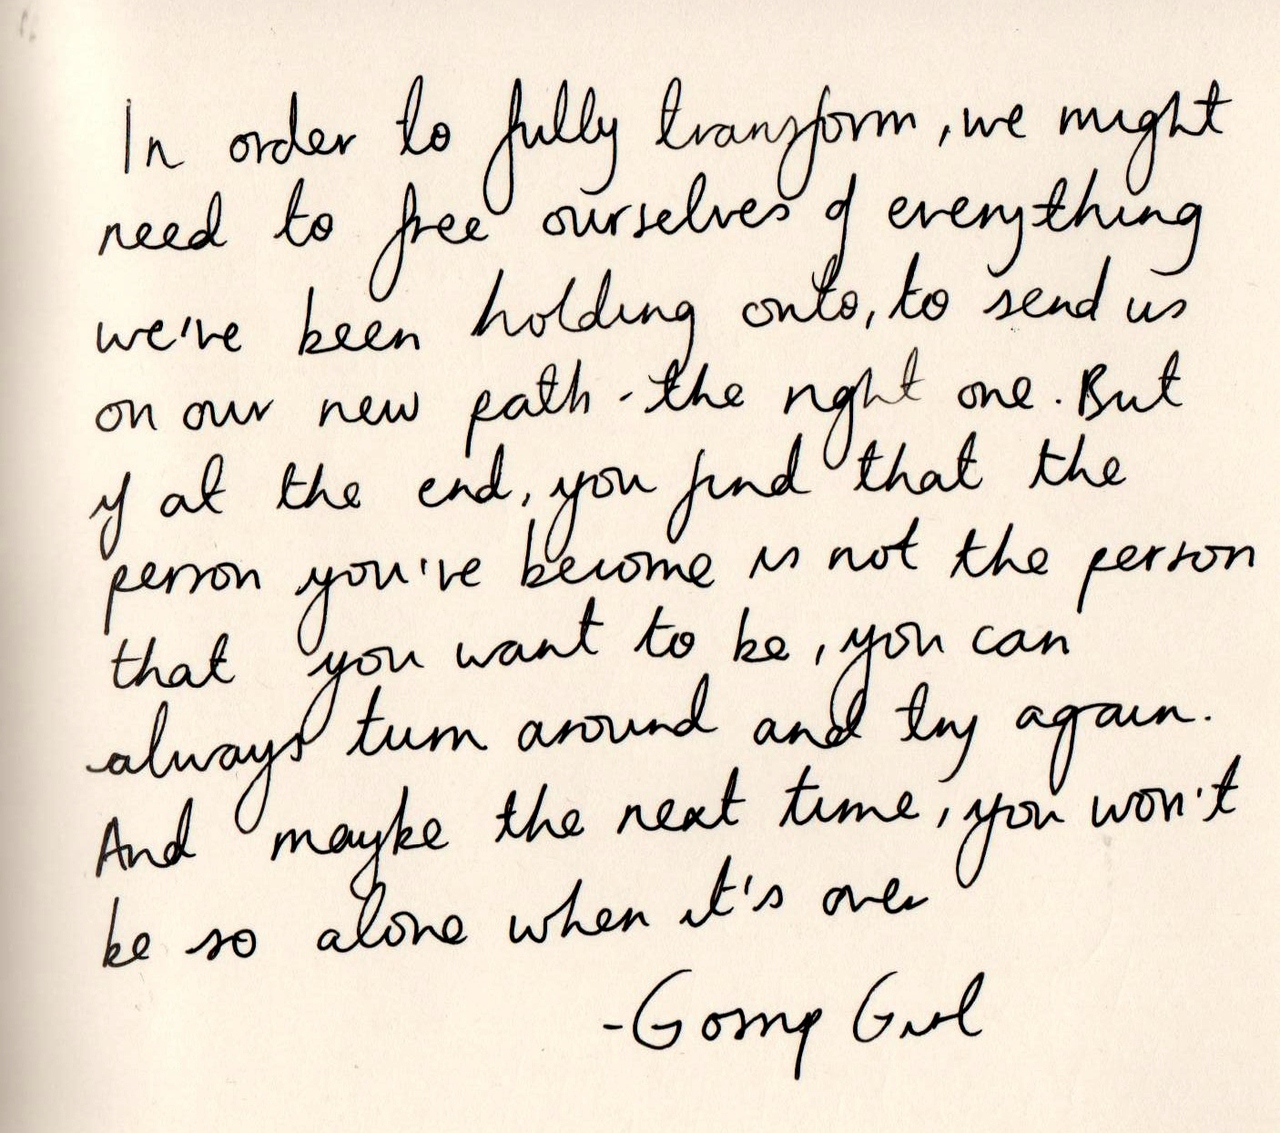 In order to fully transform, we might
need to free ourselves of everything
we've been holding onto, to send us
on our new path - the right one. But
if at the end, you find that the
person you've become is not the person
that you want to be, you can
always turn around and try again.
And maybe the next time, you won't
be so alone when it's over
- Gossip Girl